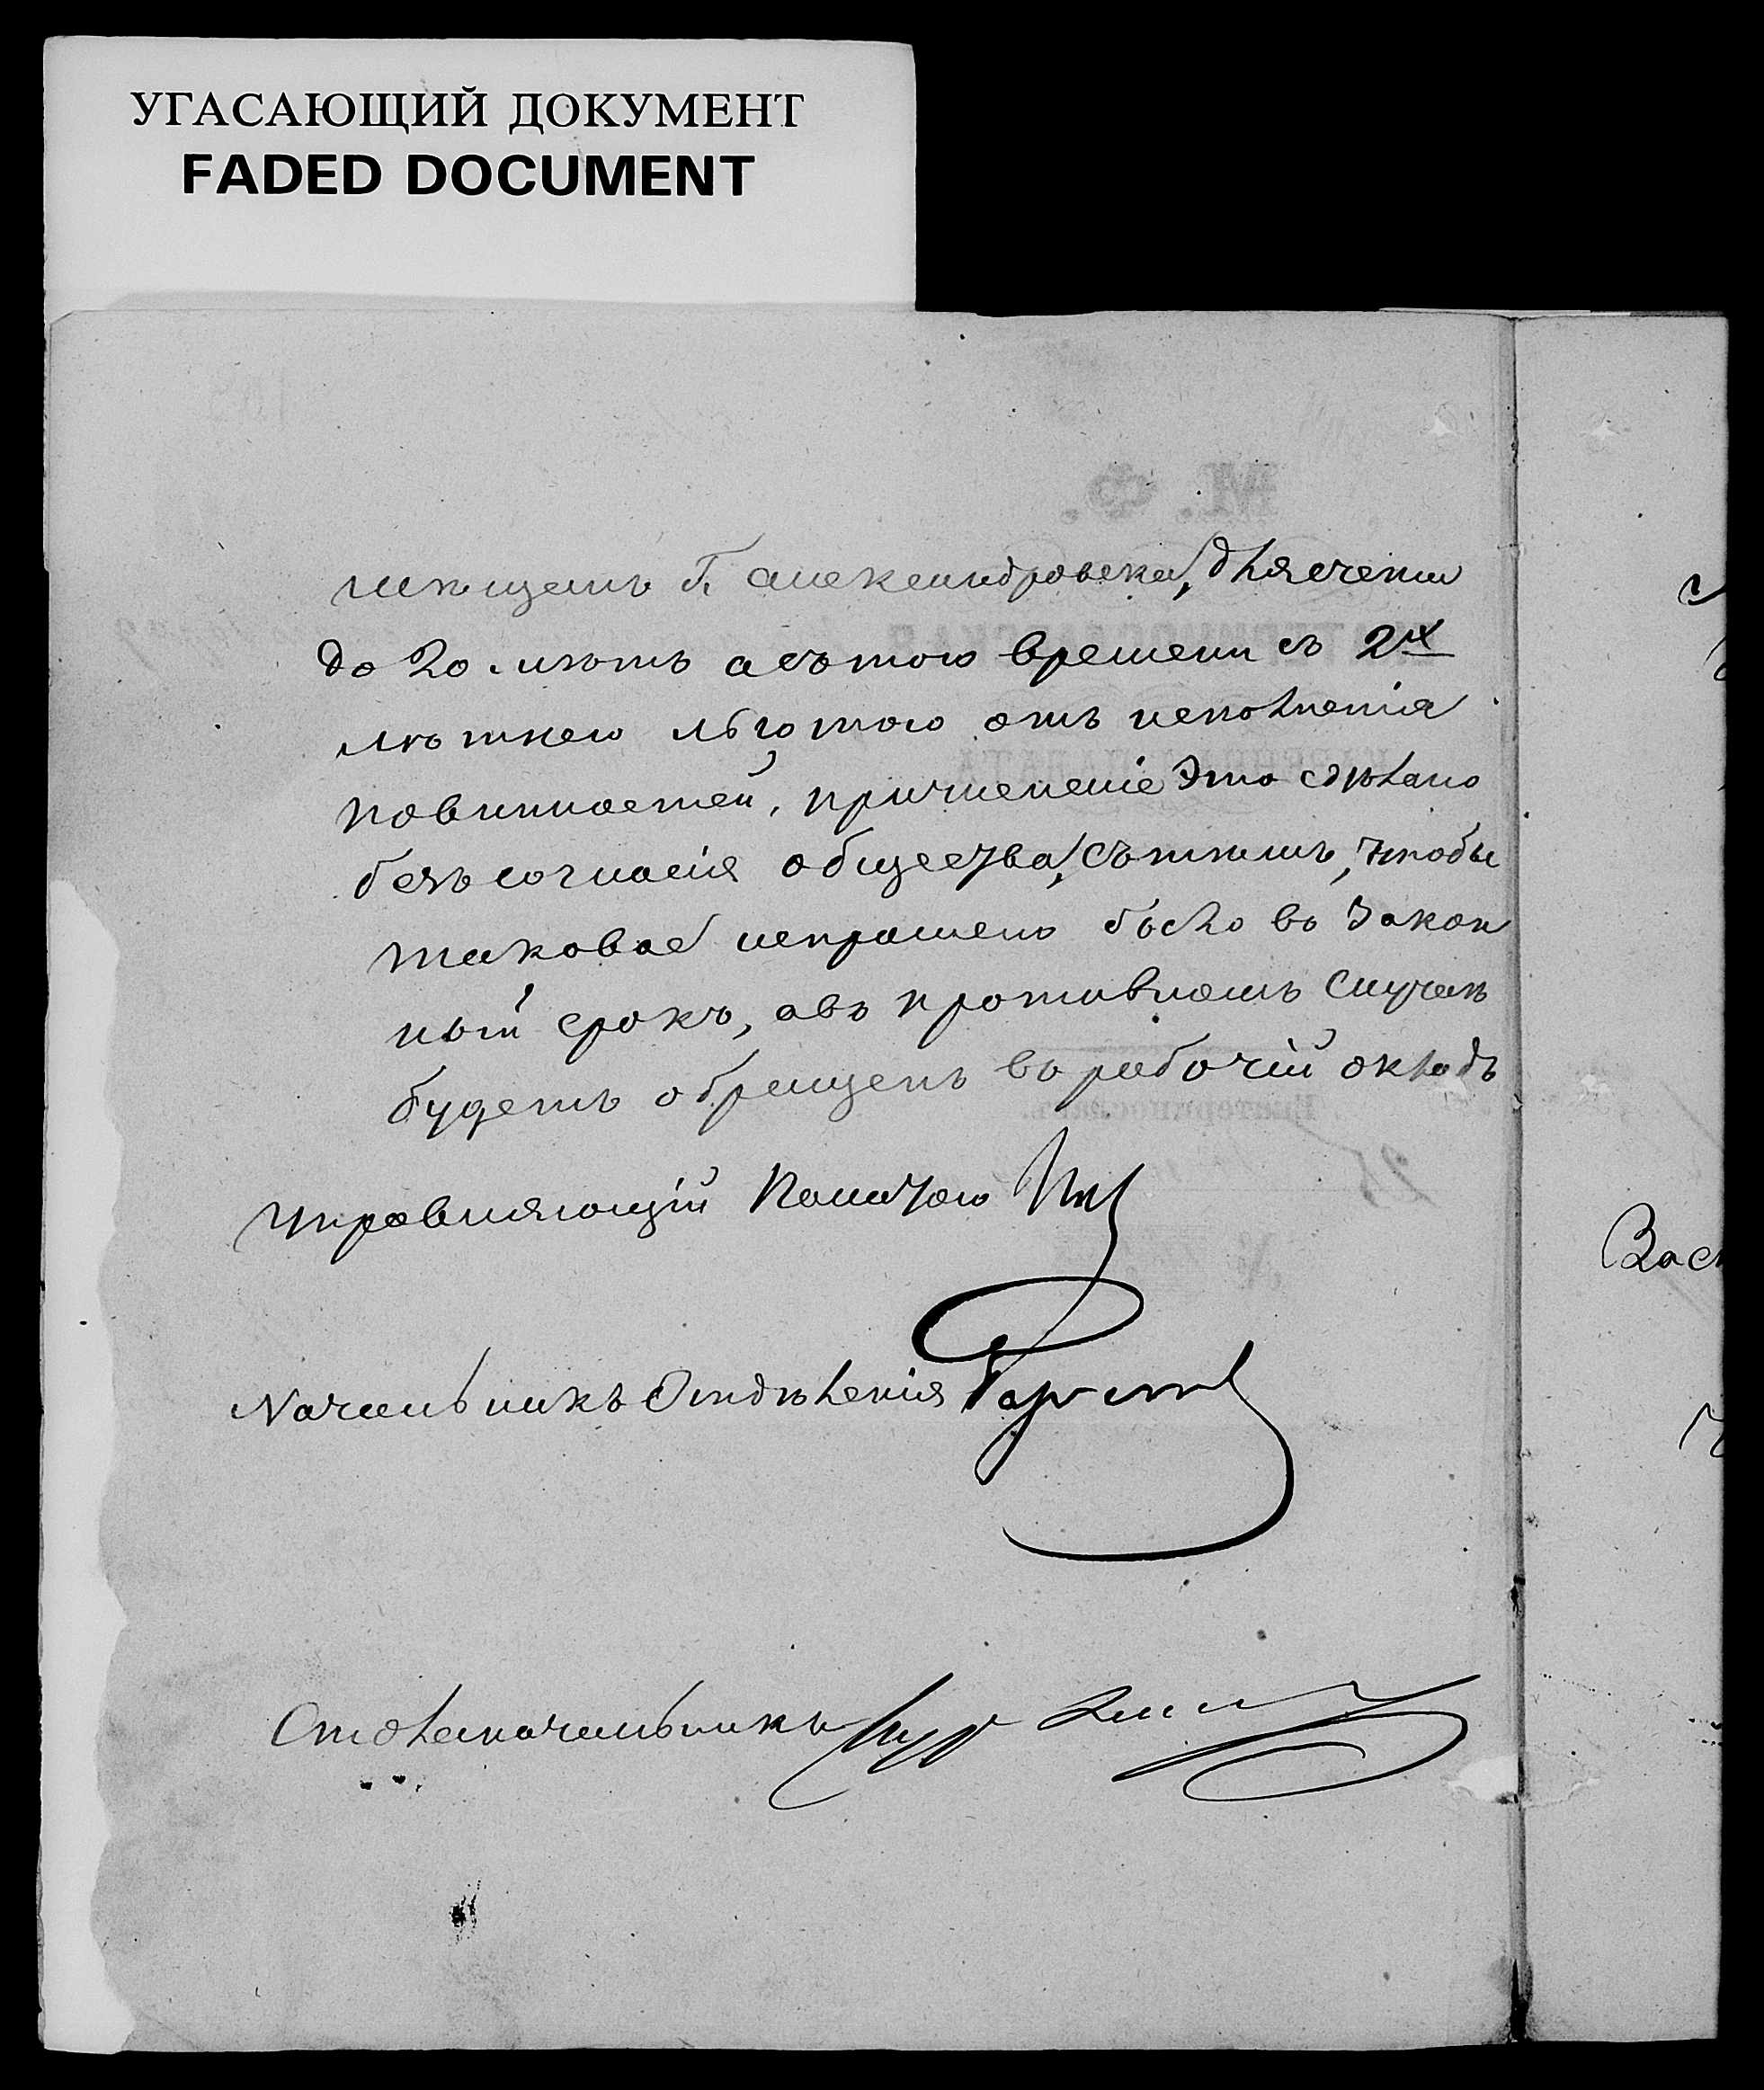 УГАСАЮЩИЙ ДОКУМЕНТ
FADED DOCUMENT
мѣщанъ г. Александровска, для счета
до 20 лѣтъ а съ того времени съ 2х
лѣтнею льготою отъ исполнения
повинностей, причисленіе это сдѣлано
безъ согласія общества, съ тѣмъ, чтобы
таковое испрошено было въ закон
ный срокъ, а въ противномъ случаѣ
будетъ обращенъ въ рабочій окладъ
Управляющій Палатою
Начальникъ Отдѣленія
Столоначальникъ
Вас